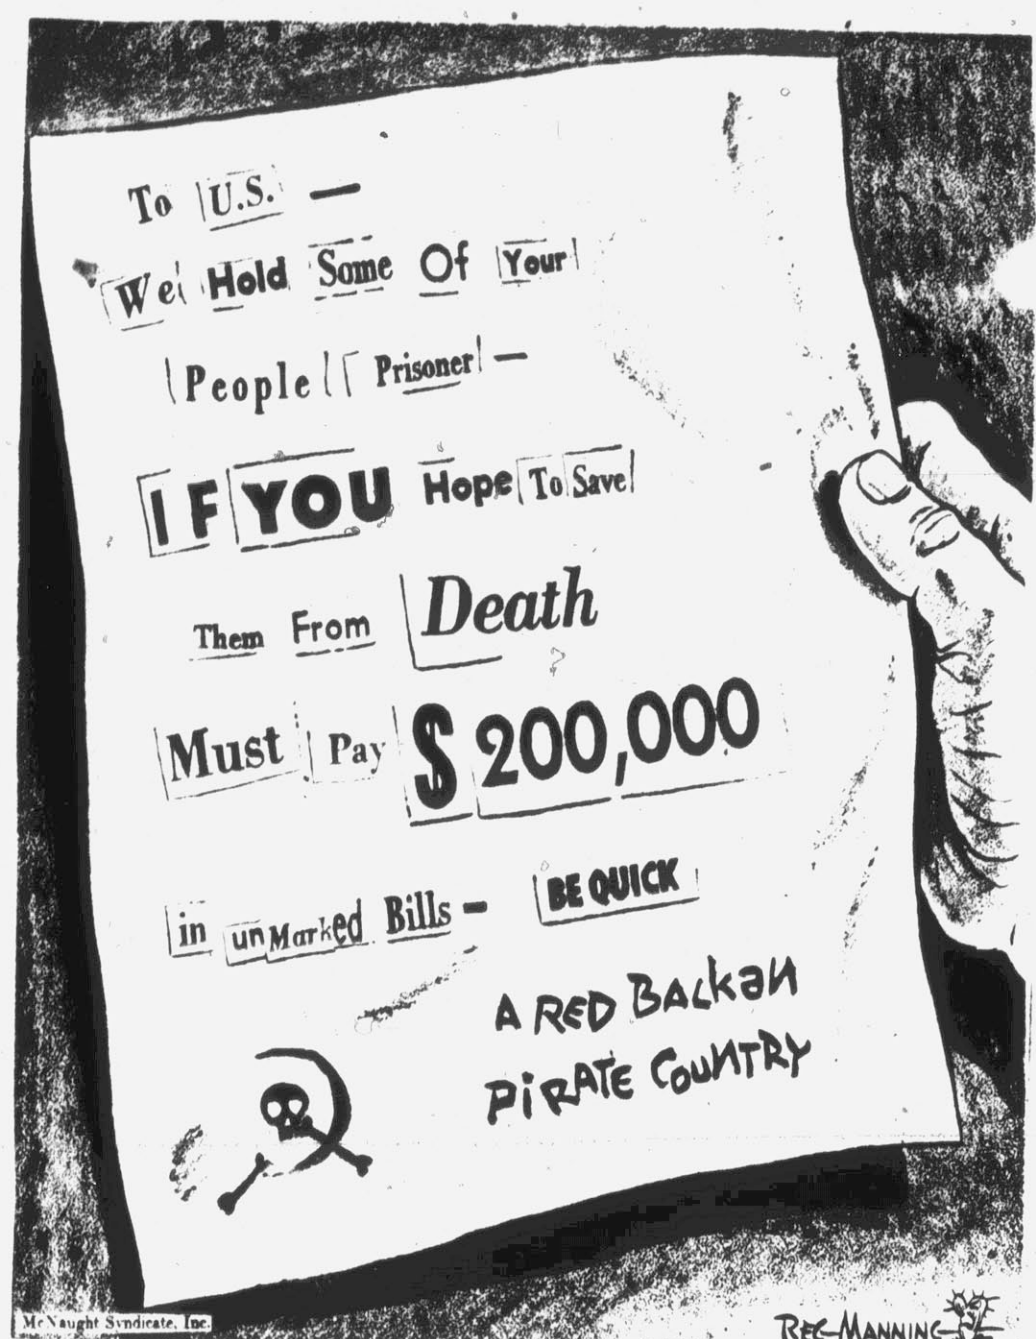 To U.S. —
We Hold Some Of Your
People Prisoner —
IF YOU Hope To Save
Them From Death
Must Pay $200,000
in unMarked Bills — BE QUICK
A RED BALkaN
PiRATE COUNTRY
McNaught Syndicate, Inc.
REG MANNING